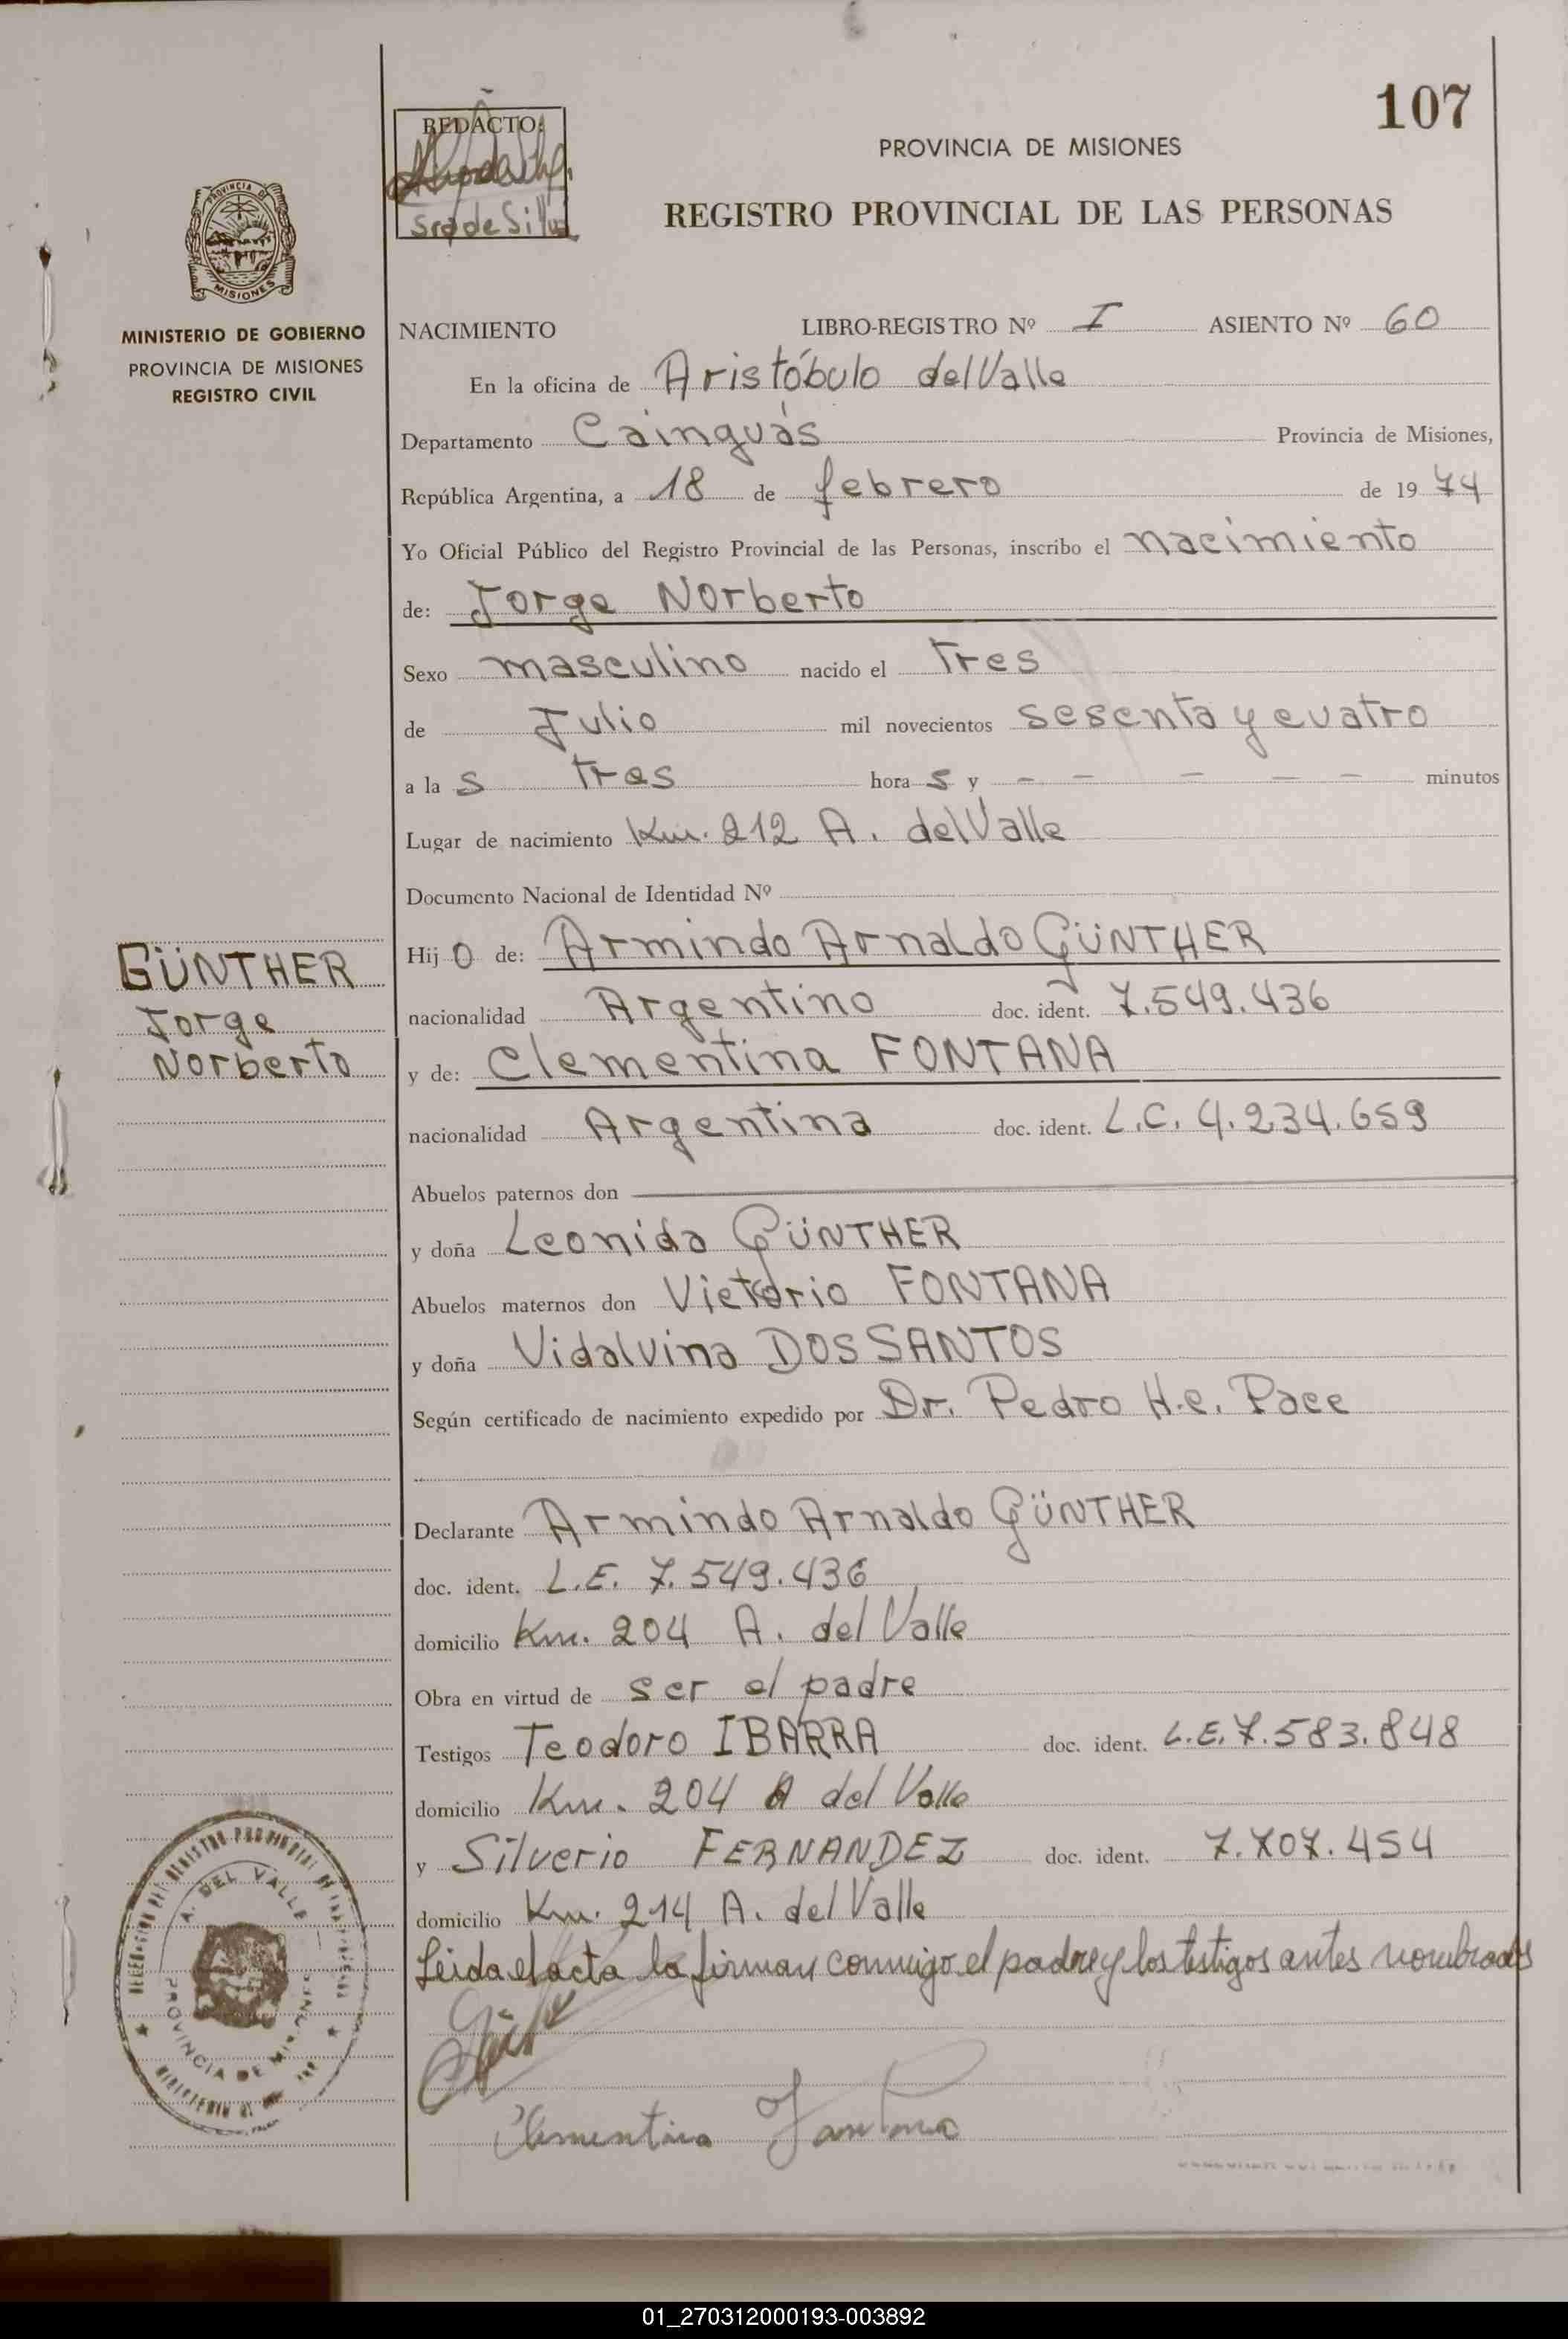 107
REDACTO:
Sra de Silva
PROVINCIA DE MISIONES
REGISTRO PROVINCIAL DE LAS PERSONAS
PROVINCIA DE
MISIONES
MINISTERIO DE GOBIERNO
PROVINCIA DE MISIONES
REGISTRO CIVIL
NACIMIENTO LIBRO-REGISTRO Nº I ASIENTO Nº 60
En la oficina de Aristóbulo del Valle
Departamento Cainguás Provincia de Misiones,
República Argentina, a 18 de febrero de 1974
Yo Oficial Público del Registro Provincial de las Personas, inscribo el nacimiento
de: Jorge Norberto
Sexo masculino nacido el Tres
de Julio mil novecientos sesenta y cuatro
a la s tres hora s y - - - - - minutos
Lugar de nacimiento Km. 212 A. del Valle
Documento Nacional de Identidad Nº
Hij o de: Armindo Arnaldo GÜNTHER
GÜNTHER
Jorge
Norberto
nacionalidad Argentino doc. ident. 7.549.436
y de: Clementina FONTANA
nacionalidad Argentina doc. ident. L.C. 4.234.659
Abuelos paternos don
y doña Leonida GÜNTHER
Abuelos maternos don Victorio FONTANA
y doña Vidalvina DOS SANTOS
Según certificado de nacimiento expedido por Dr. Pedro H.C. Pace
Declarante Armindo Arnaldo GÜNTHER
doc. ident. L.E. 7.549.436
domicilio Km. 204 A. del Valle
Obra en virtud de ser el padre
Testigos Teodoro IBARRA doc. ident. L.E. 7.583.848
domicilio Km. 204 A del Valle
y Silverio FERNANDEZ doc. ident. 7.707.454
domicilio Km. 214 A. del Valle
Leida el acta la firman conmigo el padre y los testigos antes nombrados
A. DEL VALLE
PROVINCIA DE MISIONES
Clementina Fontana
01_270312000193-003892